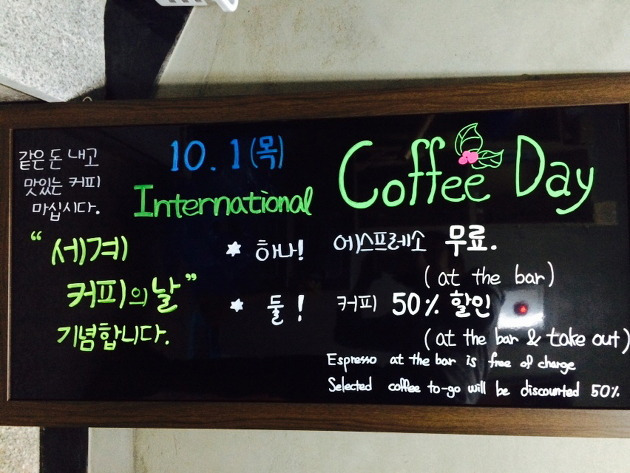 같은 돈 내고
맛있는 커피
마십시다.
10. 1 (목)
International
Coffee Day
“세계
커피의 날”
기념합니다.
* 하나! 에스프레소 무료.
(at the bar)
* 둘! 커피 50% 할인
(at the bar & take out)
Espresso at the bar is free of charge
Selected coffee to-go will be discounted 50%